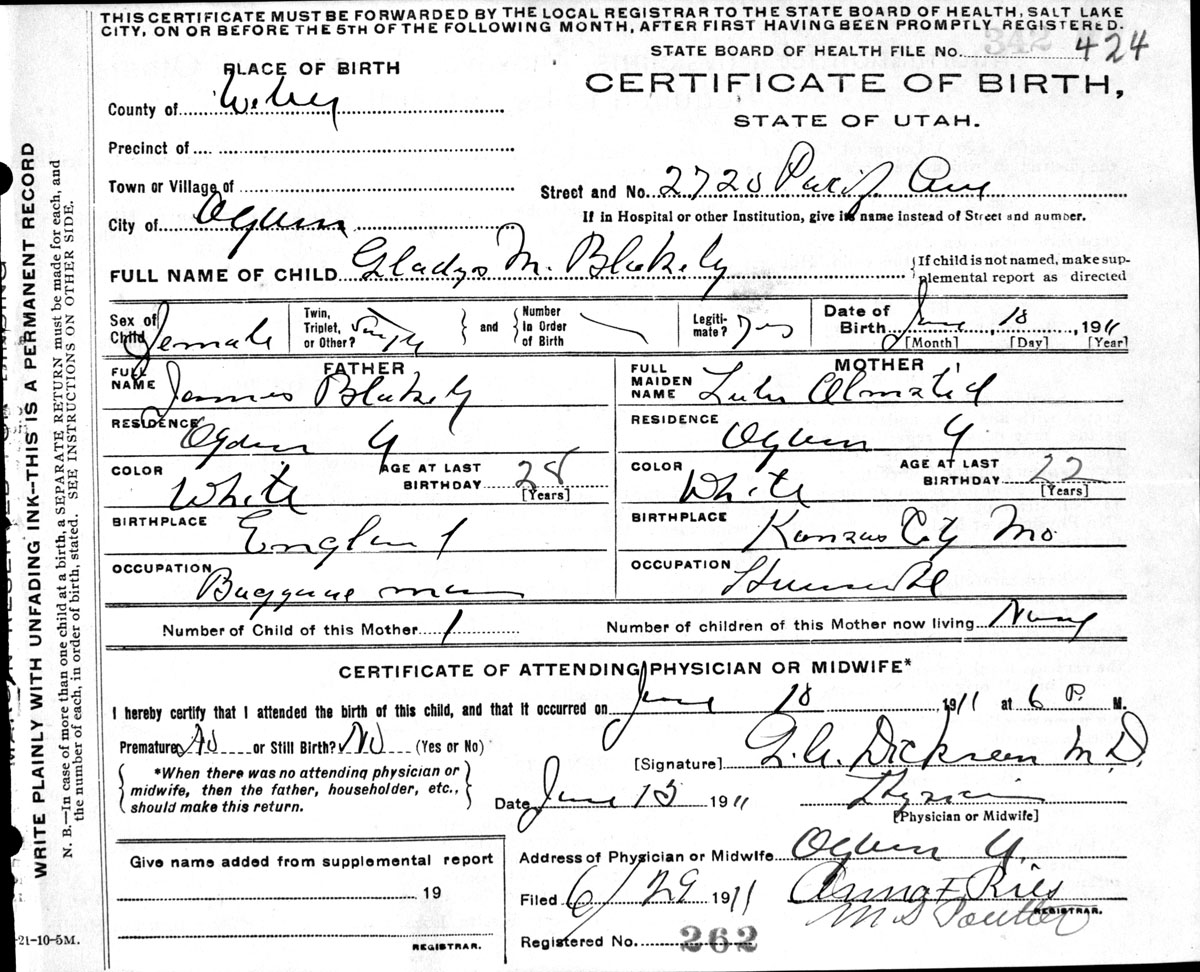 THIS CERTIFICATE MUST BE FORWARDED BY THE LOCAL REGISTRAR TO THE STATE BOARD OF HEALTH, SALT LAKE
CITY, ON OR BEFORE THE 5TH OF THE FOLLOWING MONTH, AFTER FIRST HAVING BEEN PROMPTLY REGISTERED.
STATE BOARD OF HEALTH FILE NO. 342 424
PLACE OF BIRTH
CERTIFICATE OF BIRTH,
STATE OF UTAH.
County of Weber
Precinct of
Town or Village of
Street and No. 2720 Pacif. Ave
If in Hospital or other Institution, give its name instead of Street and number.
City of Ogden
FULL NAME OF CHILD Gladys M. Blakely
{If child is not named, make sup-
plemental report as directed
Sex of Child Female
Twin, Triplet, or Other? Single
and
Number In Order of Birth
Legiti-mate? Yes
Date of Birth June 18, 1911
[Month] [Day] [Year]
FATHER
FULL NAME James Blakely
RESIDENCE Ogden U
COLOR White
AGE AT LAST BIRTHDAY 28
[Years]
BIRTHPLACE England
OCCUPATION Baggage man
MOTHER
FULL MAIDEN NAME Lulu Olmsted
RESIDENCE Ogden U
COLOR White
AGE AT LAST BIRTHDAY 22
[Years]
BIRTHPLACE Kansas City Mo.
OCCUPATION Housewife
Number of Child of this Mother 1
Number of children of this Mother now living
CERTIFICATE OF ATTENDING PHYSICIAN OR MIDWIFE*
I hereby certify that I attended the birth of this child, and that it occurred on June 18 1911 at 6 P. M.
Premature No or Still Birth? No (Yes or No)
{*When there was no attending physician or
midwife, then the father, householder, etc.,
should make this return.}
[Signature] Dickson M.D.
Date June 1911
Physician
[Physician or Midwife]
Give name added from supplemental report
19
REGISTRAR.
Address of Physician or Midwife Ogden U.
Filed 6/29 1911
REGISTRAR.
Registered No. 262
-21-10-5M.
WRITE PLAINLY WITH UNFADING INK—THIS IS A PERMANENT RECORD
N. B.—In case of more than one child at a birth, a SEPARATE RETURN must be made for each, and
the number of each, in order of birth, stated. SEE INSTRUCTIONS ON OTHER SIDE.